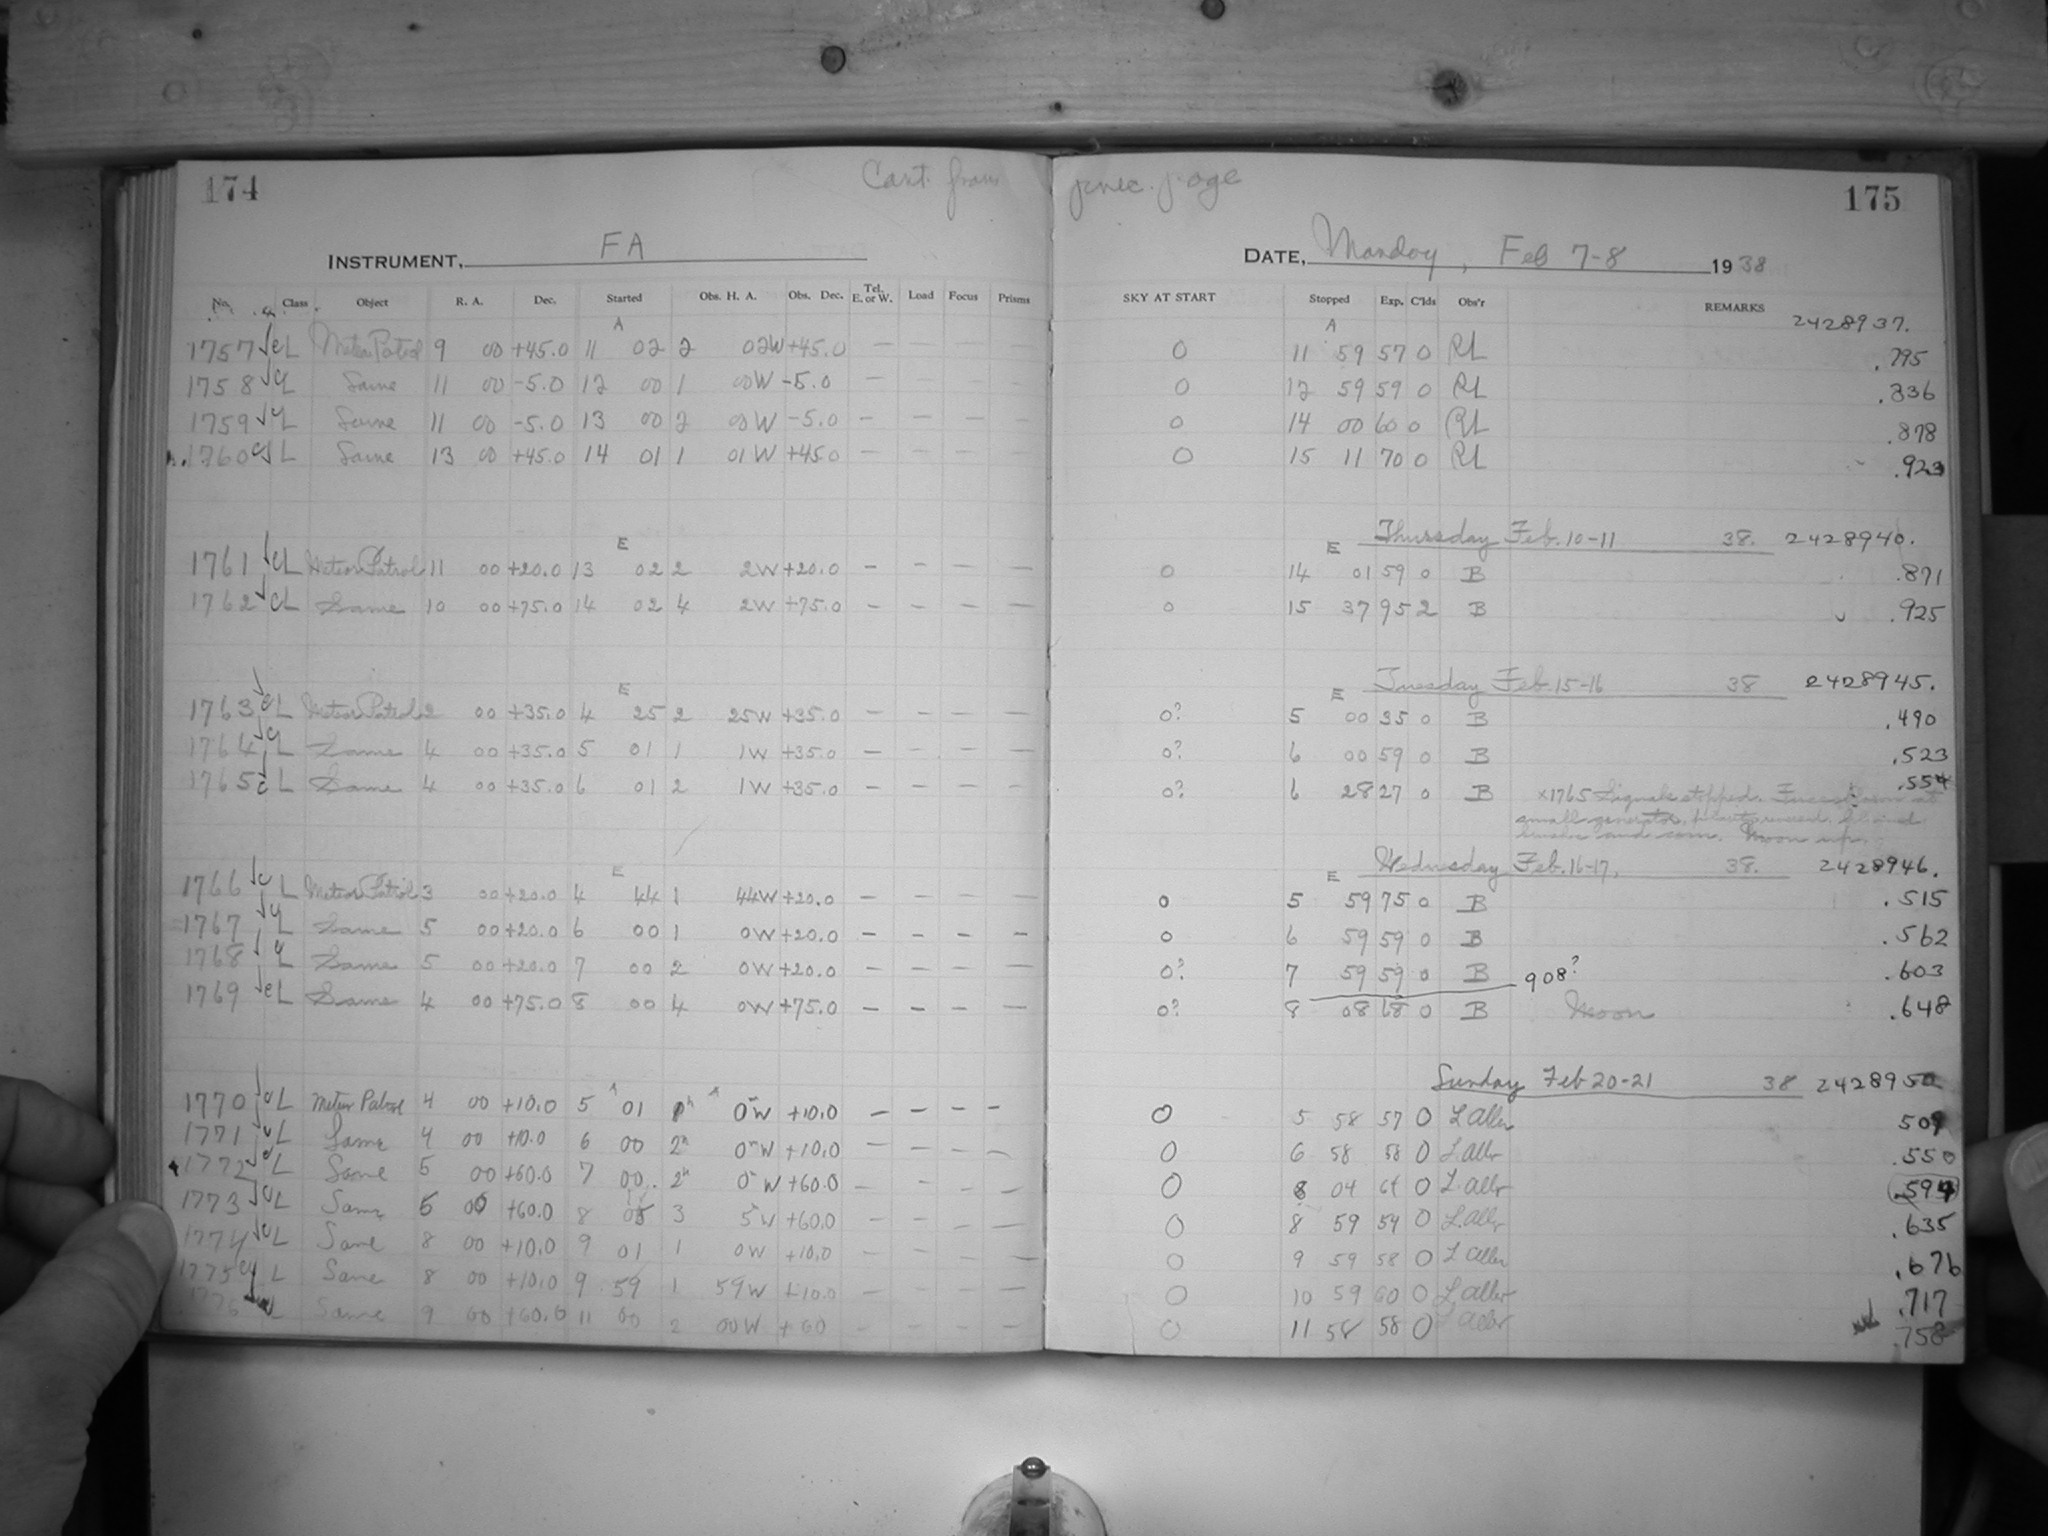 174 Cont. from prec. page 175
INSTRUMENT, FA DATE, Monday, Feb 7-8 1938
No. Class Object R. A. Dec. Started Obs. H. A. Obs. Dec. Tel. E. or W. Load Focus Prisms SKY AT START Stopped Exp. C'lds Obs'r REMARKS
A A 2428937.
1757 CL Meteor Patrol 9 00 +45.0 11 02 2 02W +45.0 — — — — 0 11 59 57 0 RL .795
1758 CL Same 11 00 -5.0 12 00 1 00W -5.0 — — — — 0 12 59 59 0 RL .836
1759 CL Same 11 00 -5.0 13 00 2 00W -5.0 — — — — 0 14 00 60 0 RL .878
1760 CL Same 13 00 +45.0 14 01 1 01W +45.0 — — — — 0 15 11 70 0 RL .923
E E Thursday Feb. 10-11 38. 2428940.
1761 CL Meteor Patrol 11 00 +20.0 13 02 2 2W +20.0 — — — — 0 14 01 59 0 B .871
1762 CL Same 10 00 +75.0 14 02 4 2W +75.0 — — — — 0 15 37 95 2 B .925
E E Tuesday Feb. 15-16 38 2428945.
1763 CL Meteor Patrol 2 00 +35.0 4 25 2 25W +35.0 — — — — 0? 5 00 35 0 B .490
1764 CL Same 4 00 +35.0 5 01 1 1W +35.0 — — — — 0? 6 00 59 0 B .523
1765 CL Same 4 00 +35.0 6 01 2 1W +35.0 — — — — 0? 6 28 27 0 B x1765 Signals stopped. .554
small generator, and Moon up.
E E Wednesday Feb. 16-17, 38. 2428946.
1766 CL Meteor Patrol 3 00 +20.0 4 44 1 44W +20.0 — — — — 0 5 59 75 0 B .515
1767 CL Same 5 00 +20.0 6 00 1 0W +20.0 — — — — 0 6 59 59 0 B .562
1768 CL Same 5 00 +20.0 7 00 2 0W +20.0 — — — — 0? 7 59 59 0 B 908? .603
1769 CL Same 4 00 +75.0 8 00 4 0W +75.0 — — — — 0? 8 08 68 0 B Moon .648
Sunday Feb 20-21 38 2428950
1770 CL Meteor Patrol 4 00 +10.0 5 01 1h 0mW +10.0 — — — — 0 5 58 57 0 L Aller 509
1771 CL Same 4 00 +10.0 6 00 2h 0mW +10.0 — — — — 0 6 58 58 0 L. Aller .550
1772 CL Same 5 00 +60.0 7 00 2h 0mW +60.0 — — — — 0 8 04 64 0 L. Aller .594
1773 CL Same 5 00 +60.0 8 05 3 5mW +60.0 — — — — 0 8 59 54 0 L. Aller .635
1774 CL Same 8 00 +10.0 9 01 1 0W +10.0 — — — — 0 9 59 58 0 L Aller .676
1775 CL Same 8 00 +10.0 9 59 1 59W +10.0 — — — — 0 10 59 60 0 L Aller .717
1776 CL Same 9 00 +60.0 11 00 2 00W +60 — — — — 0 11 58 58 0 L Aller .758